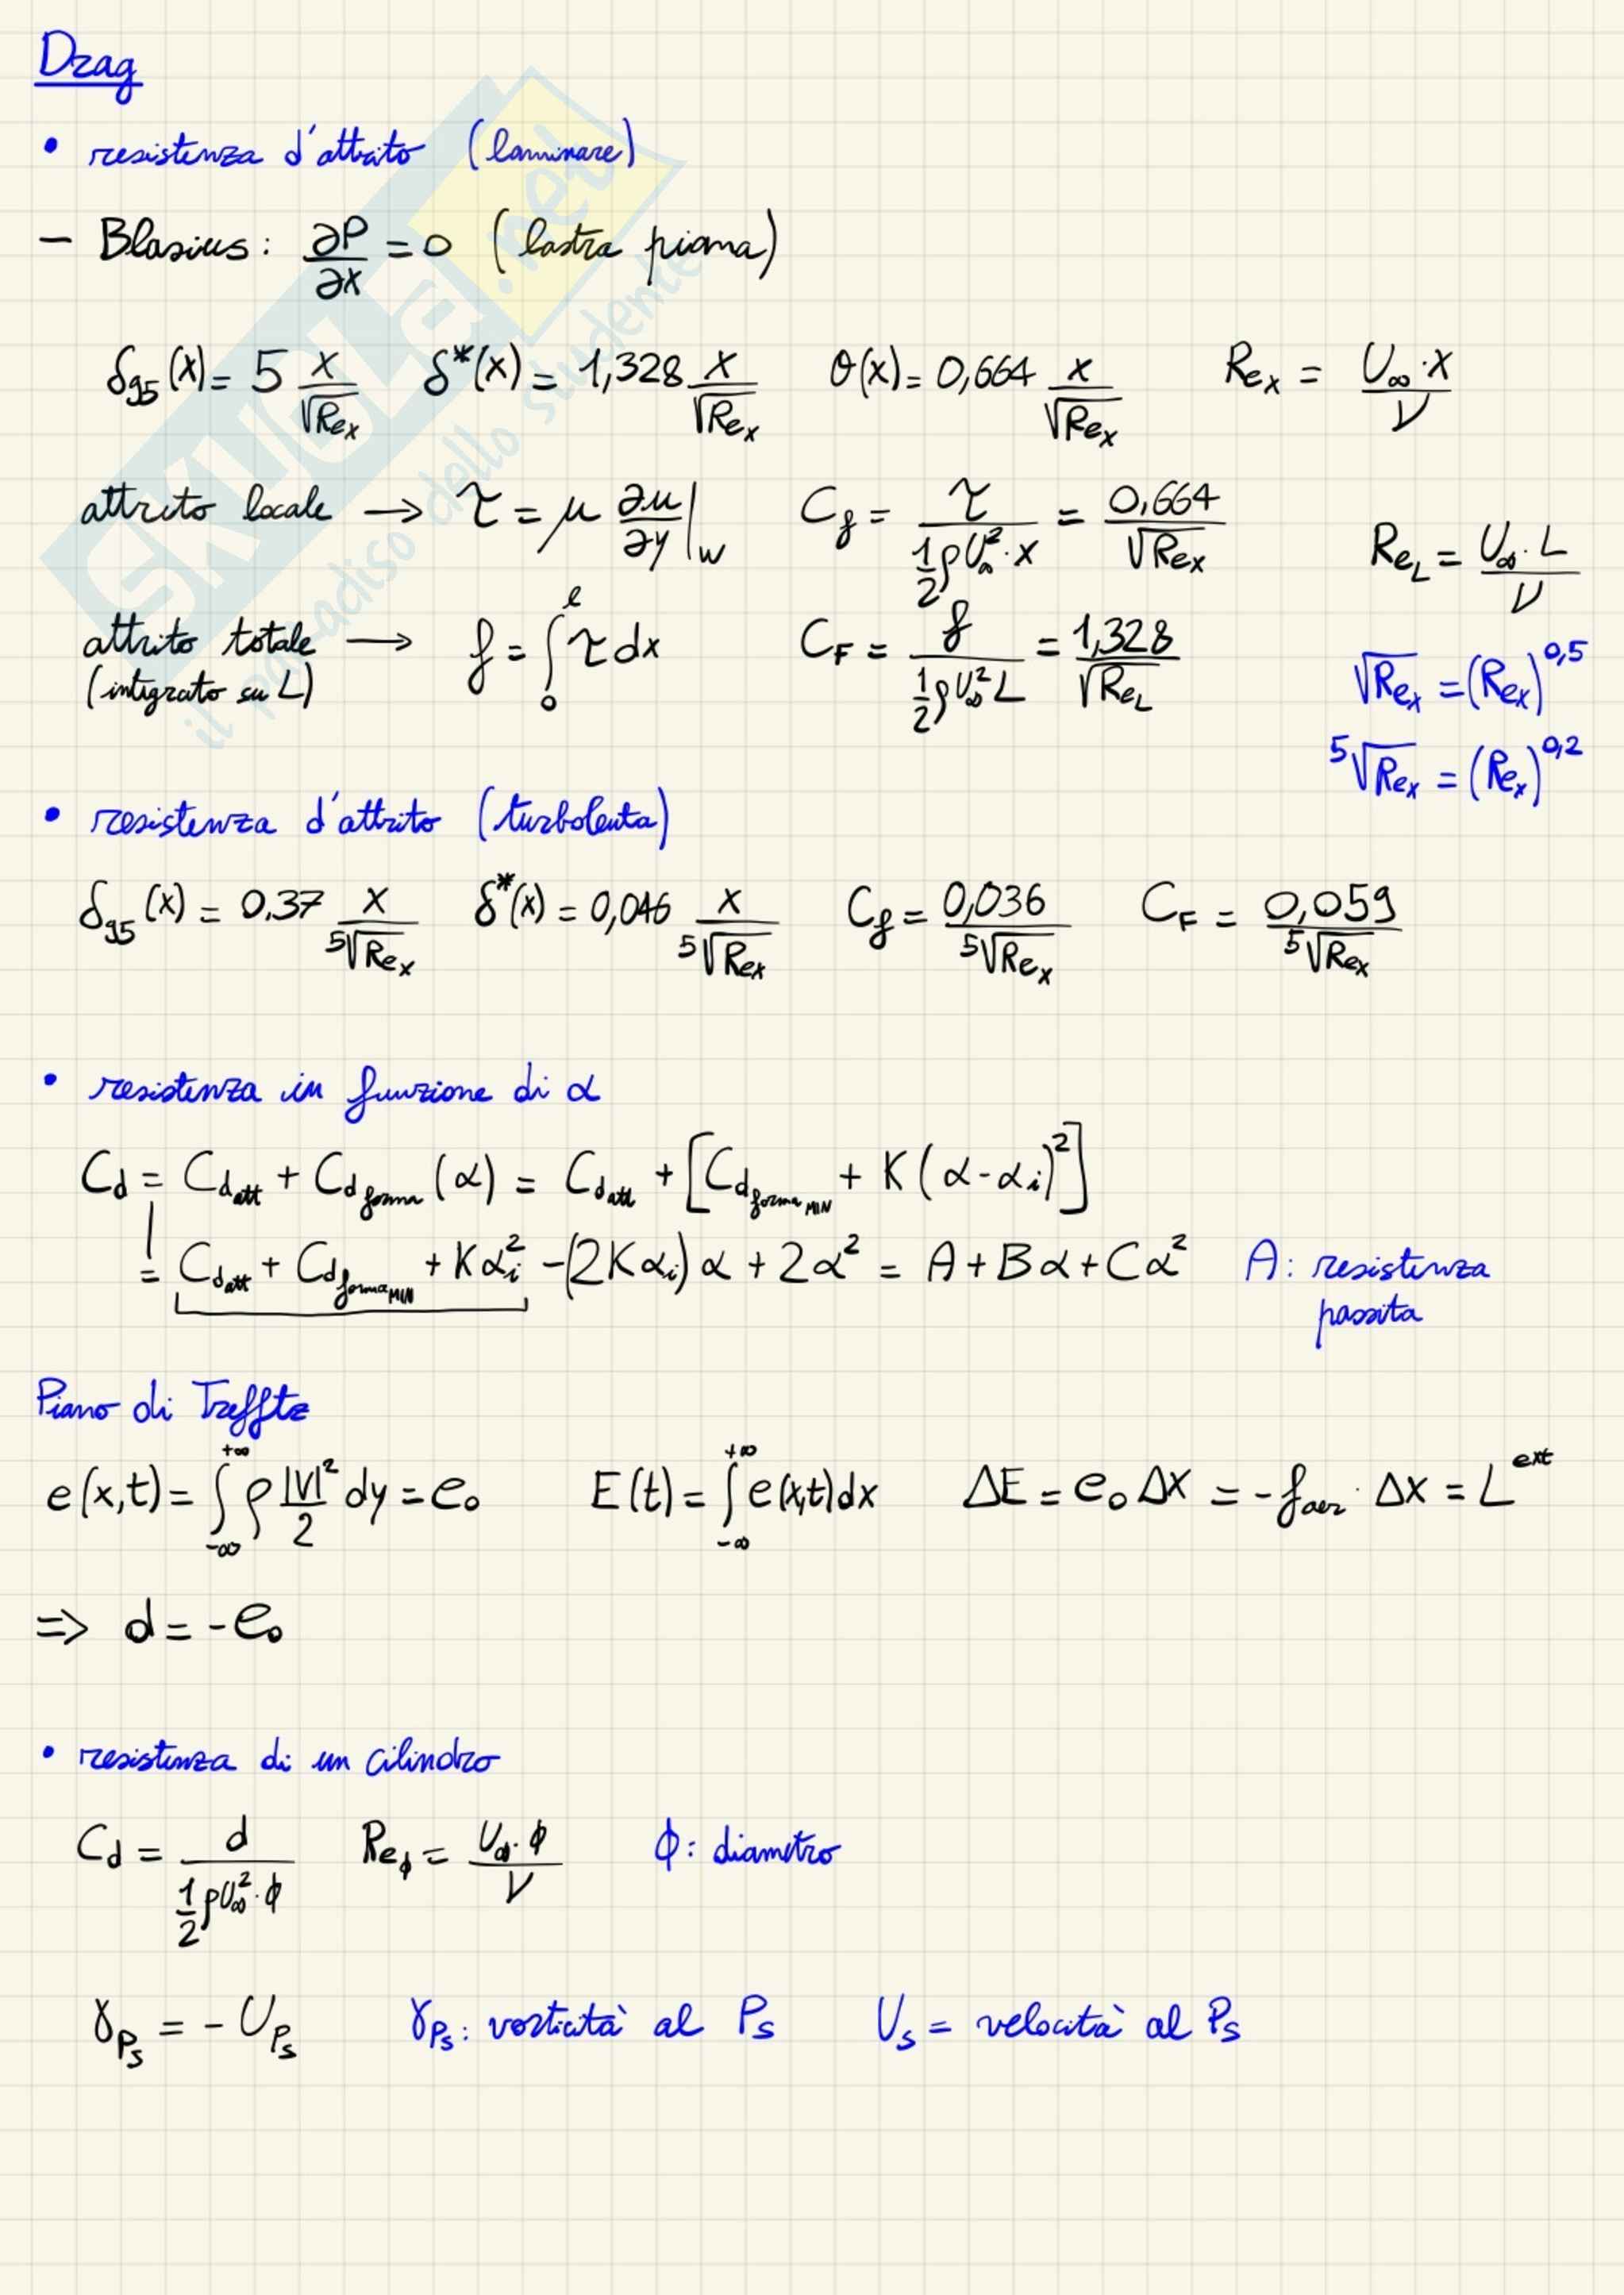 Drag
• resistenza d'attrito (laminare)
– Blasius: ∂P/∂x = 0 (lastra piana)
δ₉₅(x) = 5 x/√Reₓ   δ*(x) = 1,328 x/√Reₓ   θ(x) = 0,664 x/√Reₓ   Reₓ = U∞·x/ν
attrito locale → τ = μ ∂u/∂y|w   C_f = τ/(½ρU∞²·x) = 0,664/√Reₓ   Re_L = U∞·L/ν
attrito totale → f = ∫₀^ℓ τ dx   C_F = f/(½ρU∞²L) = 1,328/√Re_L   √Reₓ = (Reₓ)^0,5
(integrato su L)
⁵√Reₓ = (Reₓ)^0,2
• resistenza d'attrito (turbolenta)
δ₉₅(x) = 0.37 x/⁵√Reₓ   δ*(x) = 0,046 x/⁵√Reₓ   C_f = 0,036/⁵√Reₓ   C_F = 0,059/⁵√Reₓ
• resistenza in funzione di α
C_d = C_d att + C_d forma (α) = C_d att + [C_d forma MIN + K(α-αᵢ)²]
= C_d att + C_d forma MIN + Kαᵢ² -(2Kαᵢ)α + 2α² = A+Bα+Cα²   A: resistenza
passita
Piano di Trefftz
e(x,t) = ∫₋∞^+∞ ρ |V|²/2 dy = e₀   E(t) = ∫₋∞^+∞ e(x,t)dx   ΔE = e₀ Δx = -f_aer · Δx = L^ext
=> d = -e₀
• resistenza di un cilindro
C_d = d/(½ρU∞²·ϕ)   Re_ϕ = U∞·ϕ/ν   ϕ: diametro
γ_Ps = - U_Ps   γ_Ps: vorticità al Ps   U_s = velocità al Ps
SKUOLA.net
il paradiso dello studente